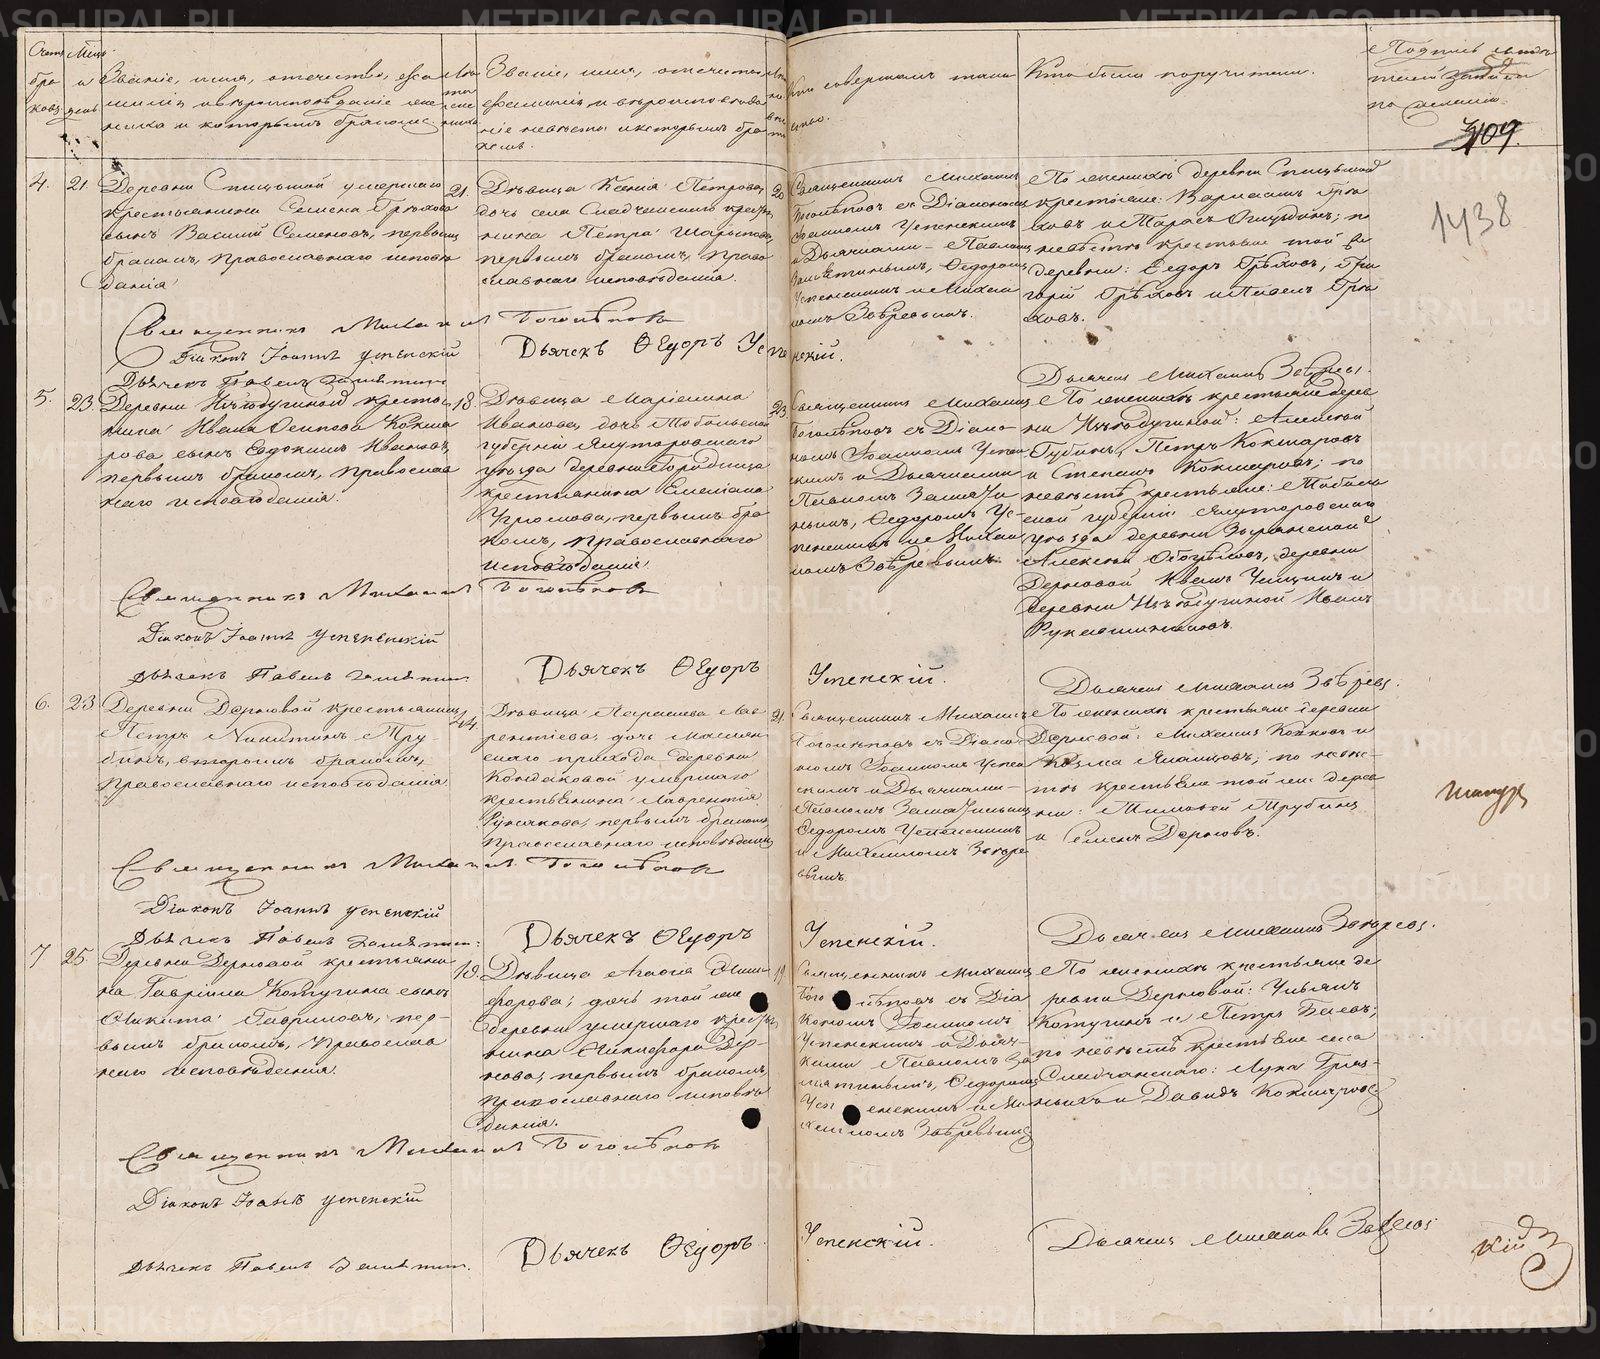 Счетъ
бра
ковъ.
Мѣсяцъ
и
день
Званіе, имя, отчество, фа
милія и вѣроисповѣданіе же
ниха и которымъ бракомъ
Лѣ
та
же
ниха
Званіе, имя, отчество
фамилія и вѣроисповѣда
ніе невѣсты и которымъ бра
комъ.
Кто совершалъ таин
ство.
Кто были поручители.
Подпись свидѣ
телей записи
по желанію.
109.
1438
4.
21.
Деревни Спицыной умершаго
крестьянина Семена Грѣхова
сынъ Василій Семеновъ, первымъ
бракомъ, православнаго исповѣ
данія
21.
Дѣвица Ксенія Петрова,
дочь села Сладчанскаго крестья
нина Петра Шарыпова,
первымъ бракомъ, право
славнаго исповѣданія.
20.
Священникъ Михаилъ
Боголѣповъ съ Діакономъ
Іоанномъ Успенскимъ
и Дьячками Павломъ
Замятинымъ, Ѳедоромъ
Успенскимъ и Михаи
ломъ Звѣревымъ.
По женихѣ деревни Спицыной
крестьяне: Варлаамъ Грѣ
ховъ и Тарасъ; по
невѣстѣ крестьяне той же
деревни: Ѳедоръ Грѣховъ, Гри
горій Грѣховъ и Павелъ Грѣ
ховъ.
Священникъ Михаилъ Боголѣповъ
Діаконъ Іоаннъ Успенскій
Дьячекъ Ѳедоръ Успенскій.
Дьячекъ Павелъ Замятинъ
Дьячекъ Михаилъ Звѣревъ.
5.
23.
Деревни крестья
нина Ивана Осипова Кокша
рова сынъ Евдокимъ Ивановъ,
первымъ бракомъ, православ
наго исповѣданія.
18.
Дѣвица Маріамна
Иванова, дочь Тобольской
губерніи Ялуторовскаго
уѣзда деревни Городища
крестьянина Емельяна
Угрюмова, первымъ бра
комъ, православнаго
исповѣданія.
23.
Священникъ Михаилъ
Боголѣповъ съ Діако
номъ Іоанномъ Успен
скимъ и Дьячками
Павломъ Замяти
нымъ, Ѳедоромъ Ус
пенскимъ и Михаи
ломъ Звѣревымъ.
По женихѣ крестьяне дерев
ни: Алексѣй
Губинъ, Петръ Кокшаровъ
и Степанъ Кокшаровъ; по
невѣстѣ крестьяне: Тоболь
ской губерніи Ялуторовскаго
уѣзда деревни
Алексѣй, деревни
Дерновой Иванъ и
деревни Иванъ
Рукавишниковъ.
Священникъ Михаилъ Боголѣповъ
Діаконъ Іоаннъ Успенскій
Дьячекъ Павелъ Замятинъ.
Дьячекъ Ѳедоръ Успенскій.
Дьячекъ Михаилъ Звѣревъ.
6.
23
Деревни Дерновой крестьянинъ
Петръ Никитинъ Тру
бинъ, вторымъ бракомъ,
православнаго исповѣданія.
44.
Дѣвица Параскева Лав
рентіева, дочь
скаго прихода деревни
Кондаковой умершаго
крестьянина Лаврентія
первымъ бракомъ
православнаго исповѣданія
21.
Священникъ Михаилъ
Боголѣповъ съ Діако
номъ Іоанномъ Успен
скимъ и Дьячками
Павломъ Замятинымъ
Ѳедоромъ Успенскимъ
и Михаиломъ Звѣре
вымъ.
По женихѣ крестьяне деревни
Дерновой: Михаилъ и
Козма; по невѣс
тѣ крестьяне той же дерев
ни: Тимофей Трубинъ
и Семенъ Дерновъ.
Священникъ Михаилъ Боголѣповъ
Діаконъ Іоаннъ Успенскій
Дьячекъ Павелъ Замятин:
Дьячекъ Ѳедоръ Успенскій.
Дьячекъ Михаилъ Звѣревъ.
7
25.
Деревни Дерновой крестьяни
на Гавріила Котугина сынъ
Никита Гавриловъ, пер
вымъ бракомъ, православ
наго исповѣданія.
18.
Дѣвица Агафія Ники
форова, дочь той же
деревни умершаго крестья
нина Никифора Дер
нова, первымъ бракомъ,
православнаго исповѣ
данія.
19
Священникъ Михаилъ
Боголѣповъ съ Діа
кономъ Іоанномъ
Успенскимъ и Дьяч
ками Павломъ За
мятинымъ, Ѳедоромъ
Успенскимъ и Ми
хаиломъ Звѣревымъ
По женихѣ крестьяне де
ревни Дерновой: Ульянъ
Котугинъ и Петръ Баевъ;
по невѣстѣ крестьяне села
Сладчанскаго: Лука Гряз
ныхъ и Давидъ Кокшаровъ
Священникъ Михаилъ Боголѣповъ
Діаконъ Іоаннъ Успенскій
Дьячекъ Павелъ Замятин.
Дьячекъ Ѳедоръ Успенскій.
Дьячекъ Михаилъ Звѣревъ
METRIKI.GASO-URAL.RU